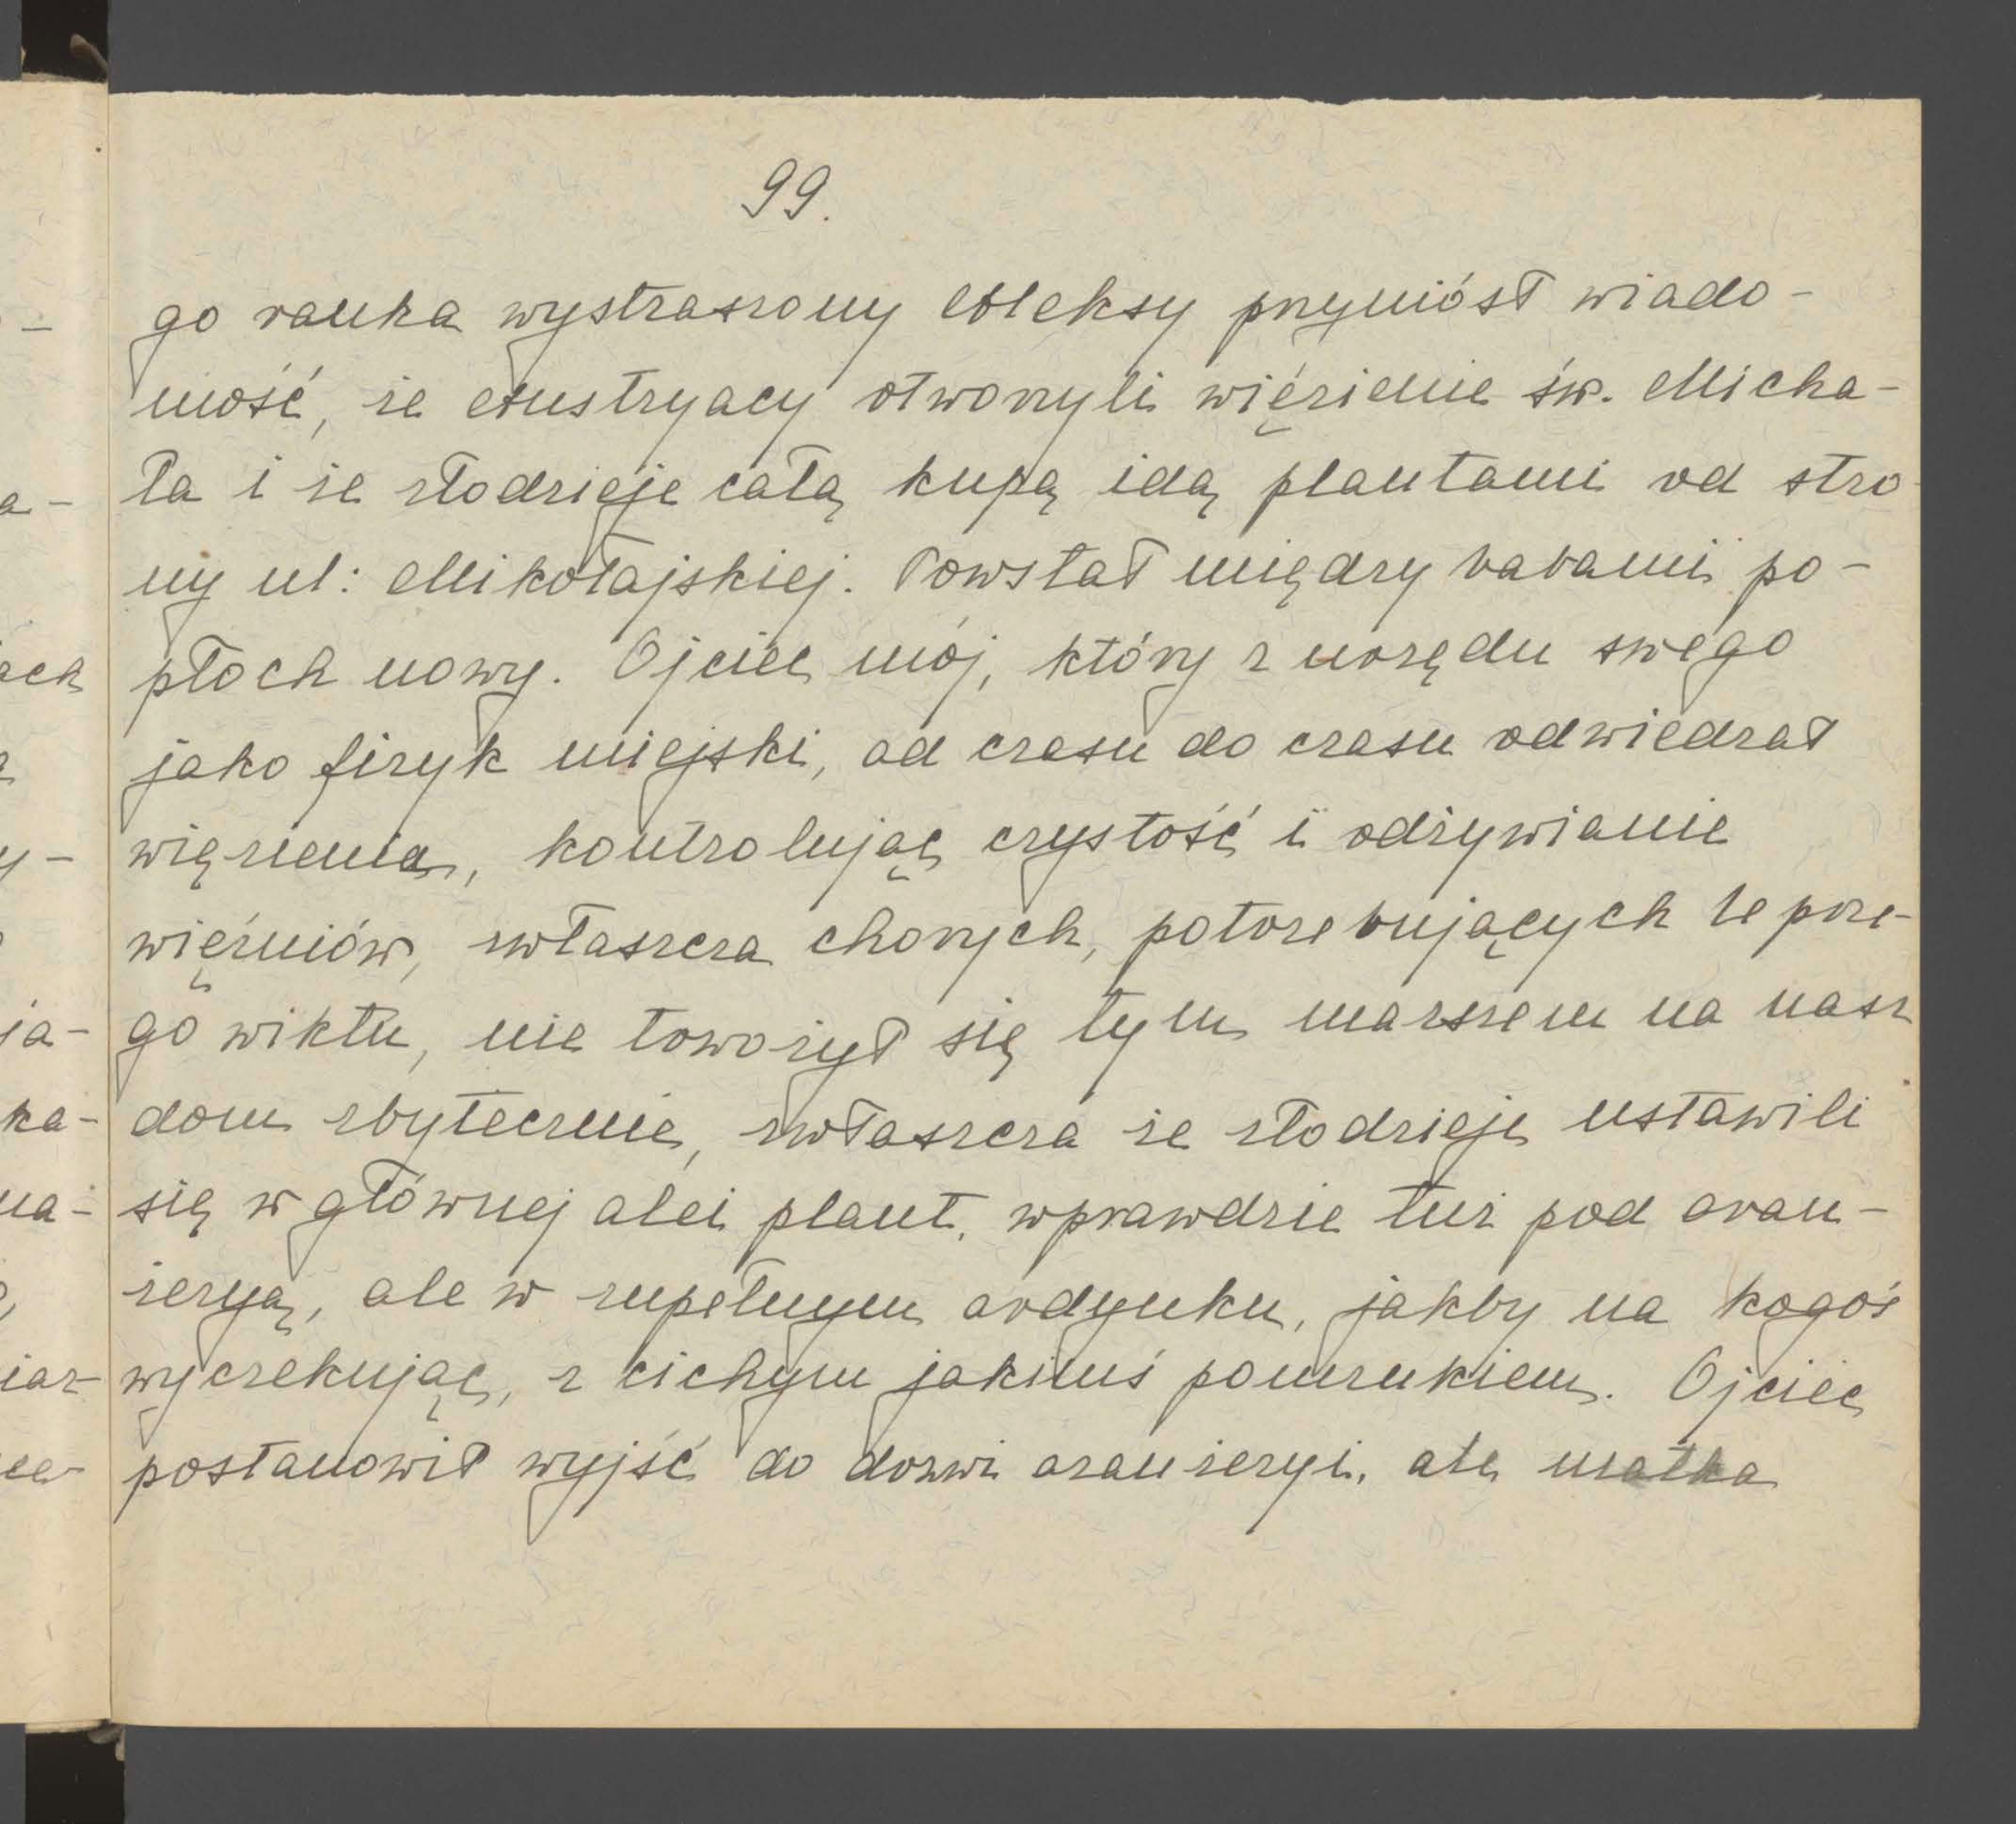 99.
go ranka wystraszony Aleksy przyniósł wiado-
mość, że Austryacy otworzyli więzienie św. Micha-
ła i że złodzieje całą kupą idą plantami od stro-
ny ul: Mikołajskiej. Powstał między babami po-
płoch nowy. Ojciec mój, który z urzędu swego
jako fizyk miejski, od czasu do czasu odwiedzał
więzienia, kontrolując czystość i odżywianie
więźniów, zwłaszcza chorych, potrzebujących lepsze-
go wiktu, nie tworzył się tym marszem na nasz
dom zbytecznie, zwłaszcza że złodzieje ustawili
się w głównej alei plant, wprawdzie tuż pod oran-
żeryą, ale w zupełnym ordynku, jakby na kogoś
wyczekując, z cichym jakimś pomrukiem. Ojciec
postanowił wyjść do drzwi oranżeryi, ale matka
-
a-
ach
y-
ja-
ka-
na-
iar-